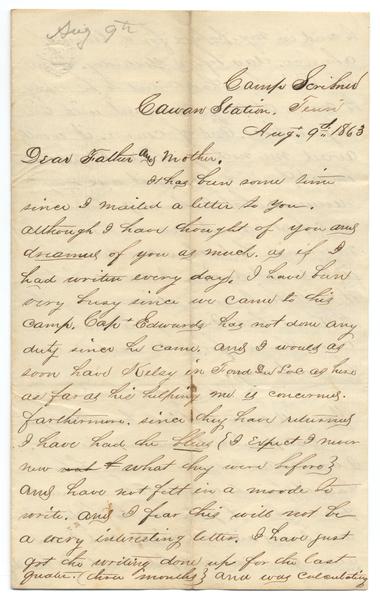 Aug 9th
Camp Scribner
Cawan Station. Tenn
Aug. 9d. 1863
Dear Father and Mother.
It has been some time
since I mailed a letter to you.
although I have thought of you and
dreamed of you as much. as if I
had writen every day. I have been
very busy since we came to this
Camp. Capt Edwards has not done any
duty since he came. and I would as
soon have Kelsy in Fond Du Lac as here
as far as his helping me is concerned.
farthermore. since they have returned
I have had the blues { I expect I never
new what they were before }
and have not felt in a moode to
write. and I fear this will not be
a very interesting letter. I have just
got the writing done up for the last
quater. (three months } and was calculating